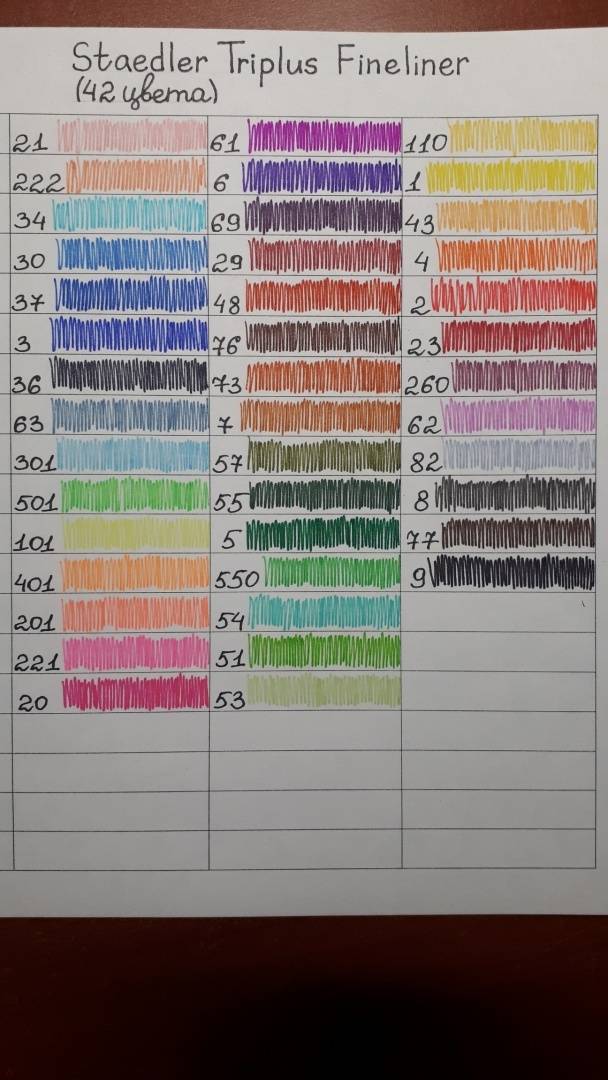 Staedler Triplus Fineliner
(42 цвета)
21 61 110
222 6 1
34 69 43
30 29 4
37 48 2
3 76 23
36 73 260
63 7 62
301 57 82
501 55 8
101 5 77
401 550 9
201 54
221 51
20 53